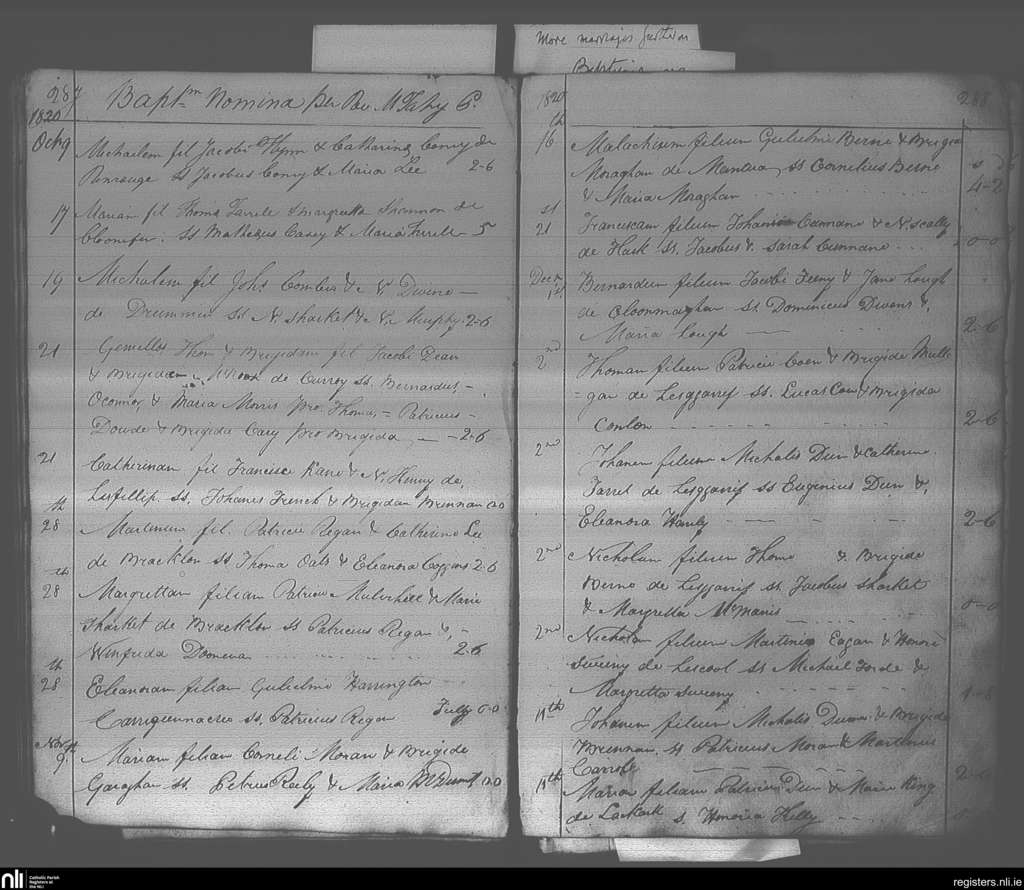 More marriages further on
Baptisms
287
Baptm Nomina per Rev. M Fahy P.
1820
Octr 9 Michaelem fil Jacobi Flynn & Catharina Conry de
Runrouge ss Jacobus Conry & Maria Lee 2-6
17 Mariam fil Thoma Farrele & Margretta Shannon de
Cloonfer. ss Matheus Casey & Maria Farrele 5
19 Michalem fil Johs Combus & N. Divine
de Drummin ss N. Sharket & N. Murphy 2-6
21 Gemellos Thom & Brigidam fil Jacobi Dean
& Brigidam de Curroy ss. Bernardus
Oconnor & Maria Morris pro Thoma, = Patricius
Dowde & Brigida Cary pro Brigida 2-6
21 Catherinam fil Francisci Kane & N. Henry de
Lisfillip. ss. Johanes French & Brigidam Brennan 0-0
28th Martinum fil. Patricii Regan & Catherine Lee
de Bracklon ss Thoma Oats & Eleanora Coggins 2-6
28th Margrettam filiam Patricii Mulvihill & Marie
Sharket de Bracklon ss Patricius Regan &,
Winfrida Doonevan 2-6
28th Eleanoram filiam Gulielmi Harrington
Carrigeennacreo ss. Patricius Regan Fully 0-0
Novr 9th Mariam filiam Corneli Moran & Brigide
Garaghan ss. Petrus Reely & Maria McDermot 0-0
1820
288
16th Malachium filium Gulielmi Berne & Brigida
Moraghan de Mantua ss Cornelius Berne s
& Maria Moraghan 4-2
21st Franciscum filium Johanis Cunnane & N. Scally
de Flask ss. Jacobus & Sarah Cunnane 0-0
Decr 1st Bernardum filium Jacobi Feeny & Jane Lough
de Cloonmaghan ss. Dominicus Divans &,
Maria Lough 2-6
2nd Thoman filium Patricii Coen & Brigide Mulli
=gan de Lisgarrif ss. Lucas Coen & Brigida
Conlon 2-6
2nd Johanem filium Michalis Dun & Catherine
Farrel de Lisgarrif ss Eugenius Dun &,
Eleanora Hanly 2-6
2nd Nicholam filium Thoma & Brigide
Berne de Lisgarrif ss. Jacobus Sharket
& Margretta McManis 0-0
2nd Nicholam filium Martinis Eagan & Honore
Sweeny de Liscool ss Michael Forde &
Margretta Sweeny
11th Johanem filium Michalis Dunn & Brigide
Brennan, ss Patricius Moran & Martinus
Carrole 2-6
11th Mariam filiam Patricii Dun & Marie King
de Larkark s. Honoria Kelly
nli
Catholic Parish
Registers at
the NLI
registers.nli.ie